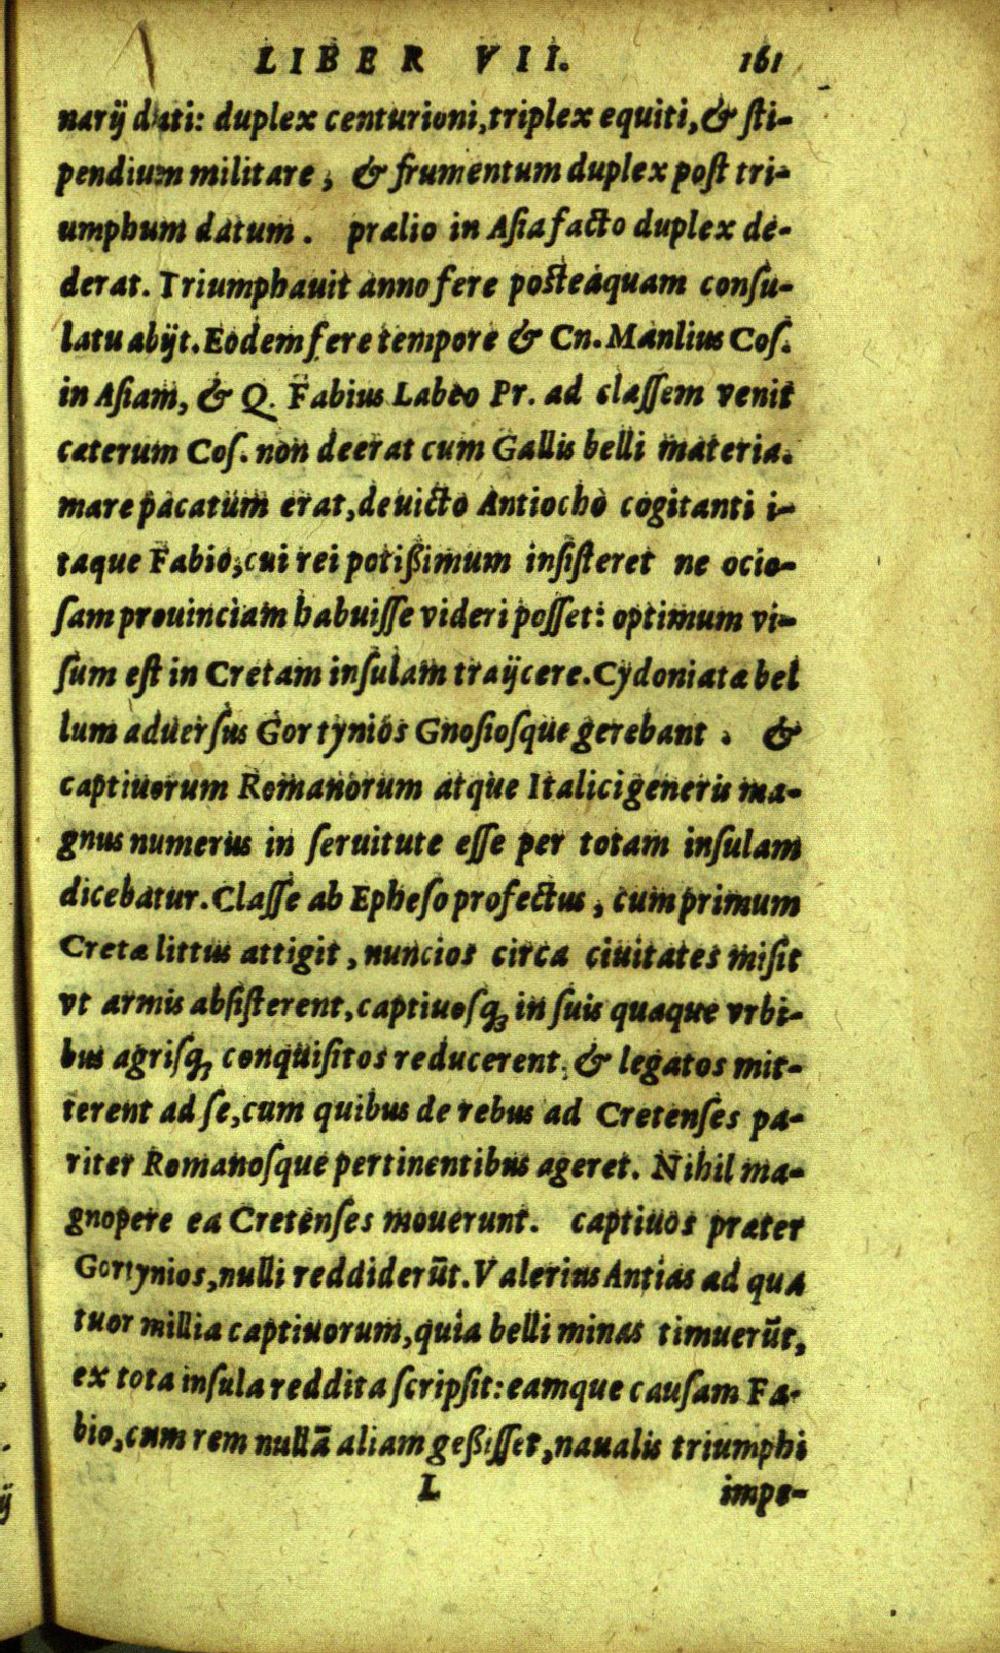 LIBER VII. 161
narij dati: duplex centurioni, triplex equiti, & ſti-
pendium militare; & frumentum duplex poſt tri-
umphum datum. prælio in Aſia facto duplex de-
derat. Triumphauit anno fere posteaquam conſu-
latu abijt. Eodem fere tempore & Cn. Manlius Coſ.
in Aſiam, & Q. Fabius Labeo Pr. ad claſſem venit
cæterum Coſ. non deerat cum Gallis belli materia.
mare pacatum erat, deuicto Antiocho cogitanti i-
taque Fabio; cui rei potißimum inſiſteret ne ocio-
ſam prouinciam habuiſſe videri poſſet: optimum vi-
ſum eſt in Cretam inſulam traijcere. Cydoniatæ bel
lum aduerſus Gortynios Gnoſioſque gerebant. &
captiuorum Romanorum atque Italici generis ma-
gnus numerus in ſeruitute eſſe per totam inſulam
dicebatur. Claſſe ab Epheſo profectus, cum primum
Cretæ littus attigit, nuncios circa ciuitates miſit
vt armis abſiſterent, captiuoſq; in ſuis quaque vrbi-
bus agriſq; conquiſitos reducerent, & legatos mit-
terent ad ſe, cum quibus de rebus ad Cretenſes pa-
riter Romanoſque pertinentibus ageret. Nihil ma-
gnopere ea Cretenſes mouerunt. captiuos præter
Gortynios, nulli reddiderūt. Valerius Antias ad qua
tuor millia captiuorum, quia belli minas timuerūt,
ex tota inſula reddita ſcripſit: eamque cauſam Fa-
bio, cum rem nullā aliam geßiſſet, naualis triumphi
L impe-